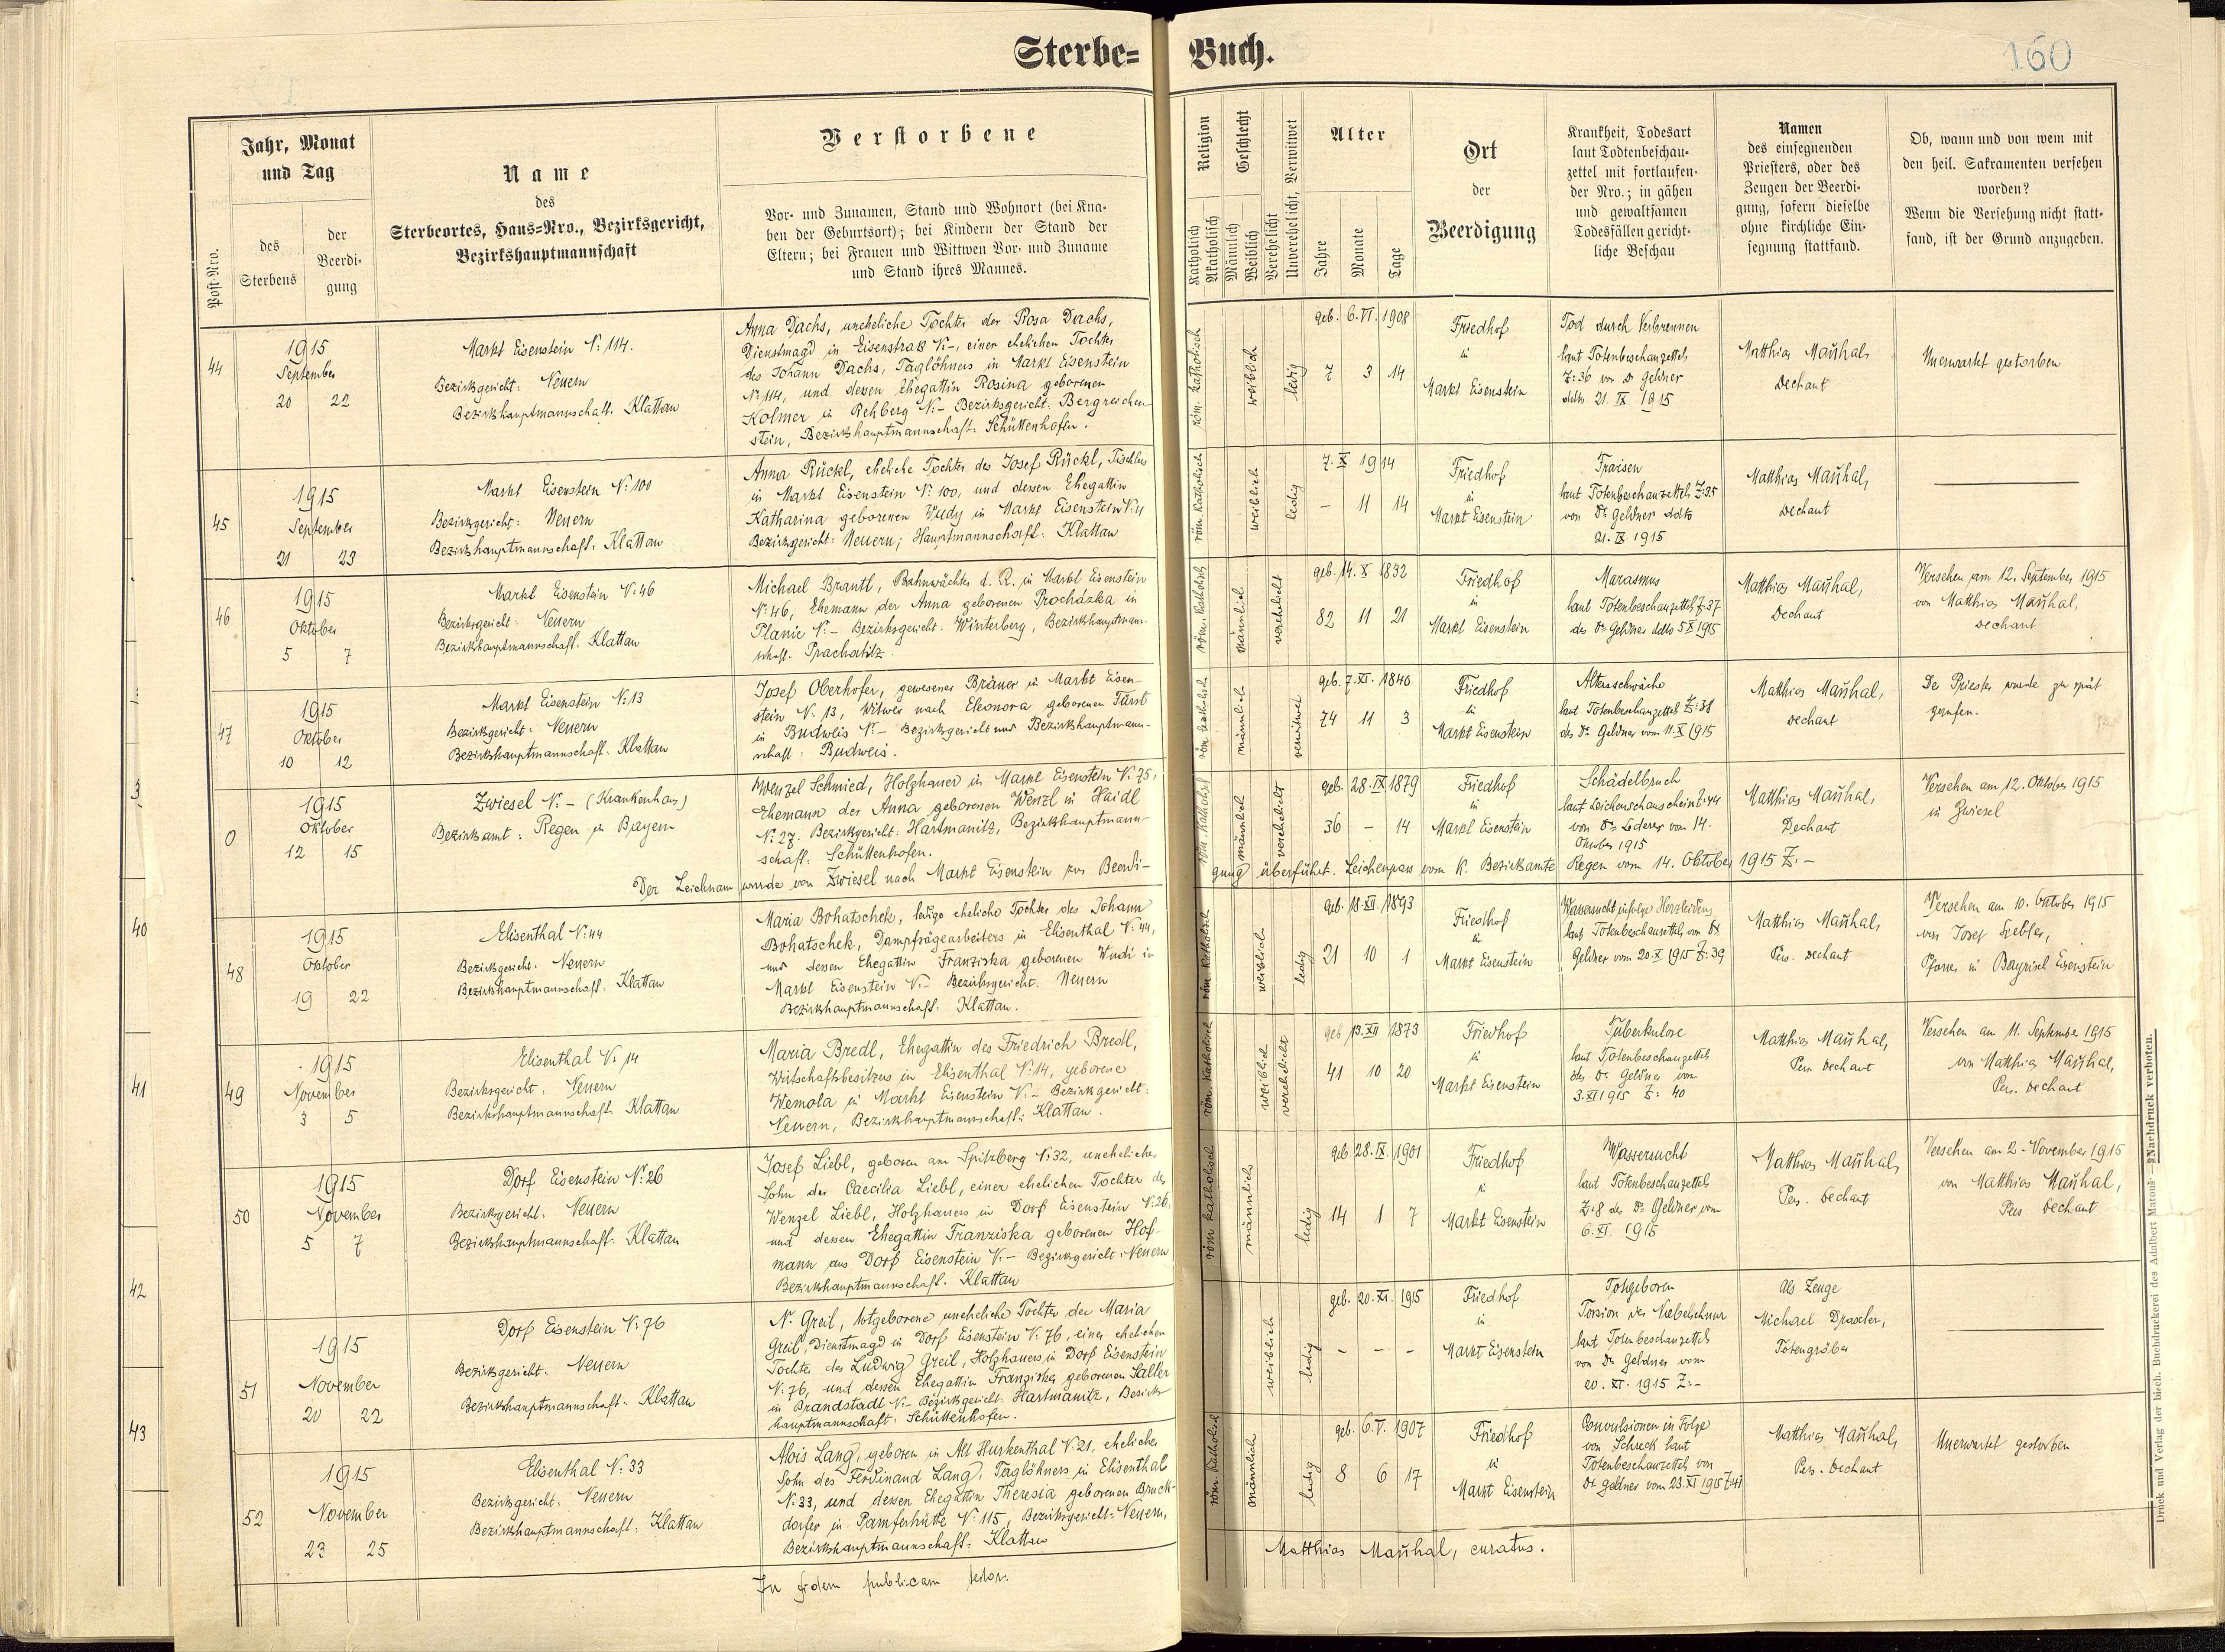 Sterbe= Buch.
160
Post-Nro.
Jahr, Monat
und Tag
des
Sterbens
der
Beerdi-
gung
Name
des
Sterbeortes, Haus=Nro., Bezirksgericht,
Bezirkshauptmannschaft
Verstorbene
Vor- und Zunamen, Stand und Wohnort (bei Kna-
ben der Geburtsort); bei Kindern der Stand der
Eltern; bei Frauen und Wittwen Vor- und Zuname
und Stand ihres Mannes.
Religion
Katholisch
Akatholisch
Geschlecht
Männlich
Weiblich
Verehelicht
Unverehelicht, Verwitwet
Alter
Jahre
Monate
Tage
Ort
der
Beerdigung
Krankheit, Todesart
laut Todtenbeschau-
zettel mit fortlaufen-
der Nro.; in gähen
und gewaltsamen
Todesfällen gericht-
liche Beschau
Namen
des einsegnenden
Priesters, oder des
Zeugen der Beerdi-
gung, sofern dieselbe
ohne kirchliche Ein-
segnung stattfand.
Ob, wann und von wem mit
den heil. Sakramenten versehen
worden?
Wenn die Versehung nicht statt-
fand, ist der Grund anzugeben.
44
1915
September
20 22
Markt Eisenstein N: 114.
Bezirksgericht: Neuern
Bezirkshauptmannschaft. Klattau
Anna Dachs, uneheliche Tochter der Rosa Dachs,
Dienstmagd in Eisenstraß N:-, einer ehelichen Tochter
des Johann Dachs, Taglöhners in Markt Eisenstein
N: 114, und dessen Ehegattin Rosina geborenen
Kolmer in Rehberg N:- Bezirksgericht: Bergreichen-
stein, Bezirkshauptmannschaft: Schüttenhofen.
röm. katholisch
weiblich
ledig
geb. 6. VI. 1908
7 3 14
Friedhof
in
Markt Eisenstein
Tod durch Verbrennen
laut Totenbeschauzettels
Z: 36 von Dr Geldner
ddto 21. IX. 1915
Matthias Maŭhal,
Dechant
Unerwartet gestorben
45
1915
September
21 23
Markt Eisenstein N: 100
Bezirksgericht: Neuern
Bezirkshauptmannschaft: Klattau
Anna Rückl, eheliche Tochter des Josef Rückl, Tischlers
in Markt Eisenstein N: 100, und dessen Ehegattin
Katharina geborenen Wudy in Markt Eisenstein N: 4
Bezirksgericht: Neuern; Hauptmannschaft: Klattau
röm. katholisch
weiblich
ledig
7. X 1914
- 11 14
Friedhof
in
Markt Eisenstein
Fraisen
laut Totenbeschauzettels Z: 35
von Dr Geldner ddto
21. IX 1915
Matthias Maŭhal,
Dechant
46
1915
Oktober
5 7
Markt Eisenstein N: 46
Bezirksgericht: Neuern
Bezirkshauptmannschaft. Klattau
Michael Brantl, Bahnwächter d. R. in Markt Eisenstein
N: 46, Ehemann der Anna geborenen Procházka in
Planie N:- Bezirksgericht: Winterberg, Bezirkshauptmann-
schaft. Prachatitz.
röm. katholisch
männlich
verehelicht
geb. 14. X 1832
82 11 21
Friedhof
in
Markt Eisenstein
Marasmus
laut Totenbeschauzettels Z: 37
des Dr Geldner ddto 5 X 1915
Matthias Maŭhal,
Dechant
Versehen am 12. September 1915
von Matthias Maŭhal,
Dechant
47
1915
Oktober
10 12
Markt Eisenstein N: 13
Bezirksgericht: Neuern
Bezirkshauptmannschaft. Klattau
Josef Oberhofer, gewesener Bräuer in Markt Eisen-
stein N. 13, Witwer nach Eleonora geborenen Fürst
in Budweis N:- Bezirksgericht und Bezirkshauptmann-
schaft: Budweis.
röm. katholisch
männlich
verwitwet
geb. 7. XI. 1840
74 11 3
Friedhof
in
Markt Eisenstein
Altersschwäche
laut Totenbeschauzettel Z: 38
des Dr Geldner vom 11. X 1915
Matthias Maŭhal,
Dechant
Der Priester wurde zu spät
gerufen.
0
1915
Oktober
12 15
Zwiesel N:- (Krankenhaus)
Bezirksamt: Regen in Bayern
Wenzel Schmied, Holzhauer in Markt Eisenstein N: 75,
Ehemann der Anna geborenen Wenzl in Haidl
N: 27. Bezirksgericht: Hartmanitz, Bezirkshauptmann-
schaft: Schüttenhofen.
röm. katholisch
männlich
verehelicht
geb. 28. IX 1879
36 - 14
Friedhof
in
Markt Eisenstein
Schädelbruch
laut Leichenschauschein Z: 44
von Dr Lederer vom 14.
Oktober 1915
Matthias Maŭhal,
Dechant
Versehen am 12. Oktober 1915
in Zwiesel
Der Leichnam wurde von Zwiesel nach Markt Eisenstein zur Beerdi-
gung überführt. Leichenpass vom K. Bezirksamte Regen vom 14. Oktober 1915 Z.-
48
1915
Oktober
19 22
Elisenthal N: 44
Bezirksgericht. Neuern
Bezirkshauptmannschaft: Klattau
Maria Bohatschek, ledige eheliche Tochter des Johann
Bohatschek, Dampfsägearbeiters in Elisenthal N: 44,
und dessen Ehegattin Franziska geborenen Wudi in
Markt Eisenstein N:- Bezirksgericht. Neuern
Bezirkshauptmannschaft: Klattau.
röm. katholisch
weiblich
ledig
geb. 18. XII. 1893
21 10 1
Friedhof
in
Markt Eisenstein
Wassersucht infolge Herzleidens
laut Totenbeschauzettels von Dr
Geldner vom 20. X 1915 Z: 39
Matthias Maŭhal,
Pers. Dechant
Versehen am 10. Oktober 1915
von Josef
Pfarrer in Bayrisch Eisenstein
49
1915
November
3 5
Elisenthal N: 14
Bezirksgericht: Neuern
Bezirkshauptmannschaft. Klattau
Maria Bredl, Ehegattin des Friedrich Bredl,
Wirtschaftsbesitzers in Elisenthal N: 14, geborene
Wemola in Markt Eisenstein N:- Bezirksgericht:
Neuern, Bezirkshauptmannschaft: Klattau.
röm. katholisch
weiblich
verehelicht
geb 13. XII 1873
41 10 20
Friedhof
in
Markt Eisenstein
Tuberkulose
laut Totenbeschauzettels
des Dr Geldner von
3. XI 1915 Z: 40
Matthias Maŭhal,
Pers. Dechant
Versehen am 11. September 1915
von Matthias Maŭhal,
Pers. Dechant
50
1915
November
5 7
Dorf Eisenstein N: 26
Bezirksgericht. Neuern
Bezirkshauptmannschaft. Klattau
Josef Liebl, geboren am Spitzberg N: 32, unehelicher
Sohn der Caecilia Liebl, einer ehelichen Tochter des
Wenzel Liebl, Holzhauers in Dorf Eisenstein N: 26,
und dessen Ehegattin Franziska geborenen Hof-
mann aus Dorf Eisenstein N:- Bezirksgericht: Neuern
Bezirkshauptmannschaft. Klattau
röm katholisch
männlich
ledig
geb. 28. IX. 1901
14 1 7
Friedhof
in
Markt Eisenstein
Wassersucht
laut Totenbeschauzettels
Z: 8 des Dr Geldner vom
6. XI. 1915
Matthias Maŭhal,
Pers. Dechant
Versehen am 2. November 1915
von Matthias Maŭhal,
Pers Dechant
51
1915
November
20 22
Dorf Eisenstein N: 76
Bezirksgericht. Neuern
Bezirkshauptmannschaft. Klattau
N. Greil, totgeborene uneheliche Tochter der Maria
Greil, Dienstmagd in Dorf Eisenstein N: 76, einer ehelichen
Tochter des Ludwig Greil, Holzhauers in Dorf Eisenstein
N: 76, und dessen Ehegattin Franziska geborenen Saller
in Brandstadt N:- Bezirksgericht. Hartmanitz, Bezirks-
hauptmannschaft: Schüttenhofen.
weiblich
ledig
geb. 20. XI. 1915
- - -
Friedhof
in
Markt Eisenstein
Totgeboren
Torsion der Nabelschnur
laut Totenbeschauzettels
von Dr Geldner vom
20. XI. 1915 Z:-
Als Zeuge
Michael Draxler,
Totengräber
52
1915
November
23 25
Elisenthal N: 33
Bezirksgericht: Neuern
Bezirkshauptmannschaft: Klattau
Alois Lang, geboren in Alt Hurkenthal N: 21, ehelicher
Sohn des Ferdinand Lang, Taglöhners in Elisenthal
N: 33, und dessen Ehegattin Theresia geborenen Bruck-
dorfer in Pamferhütte N: 115, Bezirksgericht: Neuern,
Bezirkshauptmannschaft: Klattau
röm. katholisch
männlich
ledig
geb. 6. V. 1907
8 6 17
Friedhof
in
Markt Eisenstein
Convulsionen in Folge
von Schreck laut
Totenbeschauzettels von
Dr Geldner vom 23. XI 1915 Z: 41
Matthias Maŭhal,
Pers. Dechant
Unerwartet gestorben
In fidem publicam
Matthias Maŭhal, curatus.
40
41
42
43
Druck und Verlag der bisch. Buchdruckerei des Adalbert Matouš — Nachdruck verboten.